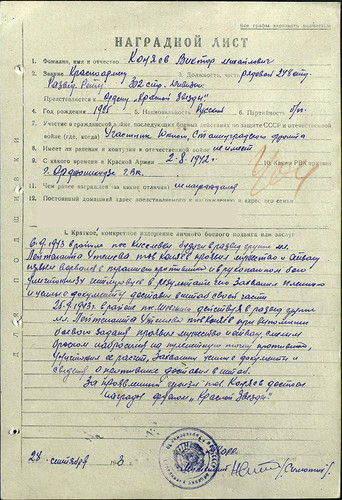 Все графы заполнять полностью
НАГРАДНОЙ ЛИСТ
1. Фамилия, имя и отчество Коняев Виктор Михайлович
2. Звание Красноармеец 3. Должность, часть рядовой 248 отд.
Развед. Роты 302 стр. Дивизии.
Представляется к Ордену "Красной Звезды"
4. Год рождения 5. Национальность Русский 6. Партийность б/п
7. Участие в гражданской войне, последующих боевых действиях по защите СССР и отечественной
войне (где, когда) Участник Южного, Сталинградского фронта
8. Имеет ли ранения и контузии в отечественной войне не имеет
9. С какого времени в Красной Армии 2-8-1942 г. 10. Каким РВК призван
г. Орджоникидзе ГВК.
11. Чем ранее награжден (за какие отличия) не награждался
12. Постоянный домашний адрес представляемого к награждению и адрес его семьи
I. Краткое, конкретное изложение личного боевого подвига или заслуг
6.9.1943 в районе пос. будучи в развед группе мл.
Лейтенанта тов. Коняев проявил мужество и отвагу
первым ворвался в траншею противника и в рукопашном бою
уничтожил в результате его захвачен пленного
и ценные документы доставил в штаб своей части
1943 г. в районе действуя в развед группе
мл. Лейтенанта при выполнении
боевого задания проявил мужество и отвагу, смелым
броском набросился на пулеметную точку противника
уничтожив ее расчет, захватил ценные документы и
сведения о противнике доставил в штаб.
За проявленный героизм тов. Коняев достоин
награды орденом "Красной Звезды"
28 сентября 3